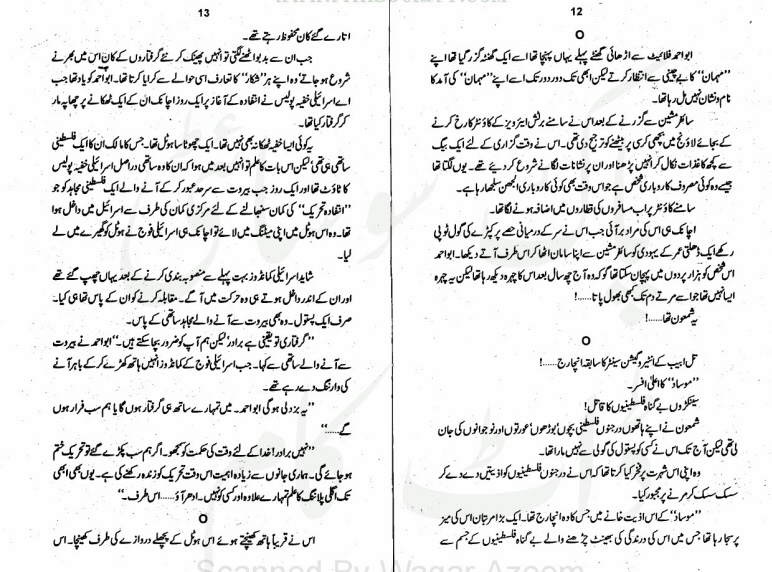 12
O
ابو احمد فلائیٹ سے اڑھائی گھنٹے پہلے یہاں پہنچا تھا اسے ایک گھنٹہ گزر گیا تھا اپنے
”مہمان“ کا بے چینی سے انتظار کرتے لیکن ابھی تک دور دور تک اسے اپنے ”مہمان“ کی آمد کا
نام و نشان نہیں مل رہا تھا۔
سائلر مشین سے گزرنے کے بعد اس نے سامنے برٹش ایئرویز کے کاؤنٹر کا رخ کرنے
کے بجائے لاؤنج میں بچھی کرسی پر بیٹھنے کو ترجیح دی تھی۔ اس نے وقت گزاری کے لئے ایک بیگ
سے کچھ کاغذات نکال کر انہیں پڑھنا اور ان پر نشانات لگانے شروع کر دیئے تھے۔ یوں لگتا تھا
جیسے وہ کوئی مصروف کاروباری شخص ہے جو اس وقت بھی کوئی کاروباری الجھن سلجھا رہا ہے۔
سامنے کاؤنٹر پر اب مسافروں کی قطاروں میں اضافہ ہونے لگا تھا۔
اچانک ہی اس کی مراد بر آئی جب اس نے سر کے درمیانی حصے پر کپڑے کی گول ٹوپی
رکھے ایک ڈھلتی عمر کے یہودی کو سائلر مشین سے اپنا سامان اٹھا کر اس طرف آتے دیکھا۔ ابو احمد
اس شخص کو ہزار پردوں میں پہچان سکتا تھا گو کہ وہ آج چھ سال بعد اس کا چہرہ دیکھ رہا تھا لیکن یہ چہرہ
ایسا نہیں تھا جو اسے مرتے دم تک کبھی بھول پاتا......!
یہ شمعون تھا......!
O
تل ابیب کے انٹیروگیشن سینٹر کا سابقہ انچارج......!
”موساد“ کا اعلیٰ افسر۔
سینکڑوں بے گناہ فلسطینیوں کا قاتل!
شمعون نے اپنے ہاتھوں درجنوں فلسطینی بچوں‘ بوڑھوں‘ عورتوں اور نوجوانوں کی جان
لی تھی لیکن آج تک اس نے کسی کو پستول کی گولی سے نہیں مارا تھا۔
وہ اپنی اس شہرت پر فخر کیا کرتا تھا کہ اس نے درجنوں فلسطینیوں کو اذیتیں دے دے کر
سسک سسک کر مرنے پر مجبور کیا۔
”موساد“ کے اس اذیت خانے میں جس کا وہ انچارج تھا۔ ایک بڑا مرتبان اس کی میز
پر سجا رہتا تھا جس میں اس کی درندگی کی بھینٹ چڑھنے والے بے گناہ فلسطینیوں کے جسم سے
13
اتارے گئے کان محفوظ رہتے تھے۔
جب ان سے بدبو اٹھنے لگتی تو انہیں پھینک کر نئے گرفتاروں کے کان اس میں بھرنے
شروع ہو جاتے‘ وہ اپنے ہر ”شکار“ کا تعارف اسی حوالے سے کرایا کرتا تھا۔ ابو احمد کو یاد تھا جب
اسے اسرائیلی خفیہ پولیس نے انتفادہ کے آغاز پر ایک روز اچانک ان کے ایک ٹھکانے پر چھاپہ مار
کر گرفتار کیا تھا۔
یہ کوئی ایسا خفیہ ٹھکانہ بھی نہیں تھا۔ ایک چھوٹا سا ہوٹل تھا۔ جس کا مالک ان کا ایک فلسطینی
ساتھی ہی تھا‘ لیکن اس بات کا علم تو انہیں بعد میں ہوا کہ ان کا وہ ساتھی دراصل اسرائیلی خفیہ پولیس
کا ٹاؤٹ تھا اور ایک روز جب بیروت سے سرحد عبور کر کے آنے والے ایک فلسطینی مجاہد کو جو
”انتفادہ تحریک“ کی کمان سنبھالنے کے لئے مرکزی کمان کی طرف سے اسرائیل میں داخل ہوا
تھا۔ وہ اس ہوٹل میں اپنی میٹنگ میں لائے تو اچانک ہی اسرائیلی فوج نے ہوٹل کو گھیرے میں لے
لیا۔
شاید اسرائیلی کمانڈوز بہت پہلے سے منصوبہ بندی کرنے کے بعد یہاں چھپ گئے تھے
اور ان کے اندر داخل ہوتے ہی وہ حرکت میں آ گئے۔ مقابلہ کرنے کو ان کے پاس تھا ہی کیا۔
صرف ایک پستول۔ وہ بھی بیروت سے آنے والے مجاہد ساتھی کے پاس۔
”گرفتاری تو یقینی ہے برادر‘ لیکن ہم آپ کو ضرور بچا سکتے ہیں۔“ ابو احمد نے بیروت
سے آنے والے ساتھی سے کہا۔ جب اسرائیلی فوج کے کمانڈوز انہیں ہاتھ کھڑے کر کے باہر آنے
کی وارننگ دے رہے تھے۔
”یہ بزدلی ہو گی ابو احمد۔ میں تمہارے ساتھ ہی گرفتار ہوں گا یا ہم سب فرار ہوں
گے......“
”نہیں برادر! خدا کے لئے وقت کی حکمت کو سمجھو۔ اگر ہم سب پکڑے گئے تو تحریک ختم
ہو جائے گی۔ ہماری جانوں سے زیادہ اہمیت اس وقت تحریک کو زندہ رکھنے کی ہے۔ یوں بھی ابھی
تک اگلی پلاننگ کا علم تمہارے علاوہ اور کسی کو نہیں۔ ادھر آؤ...... اس طرف۔“
O
اس نے قریباً ہاتھ کھینچتے ہوئے اس ہوٹل کے پچھلے دروازے کی طرف کھینچا۔ اس
Scanned By Waqar Azeem